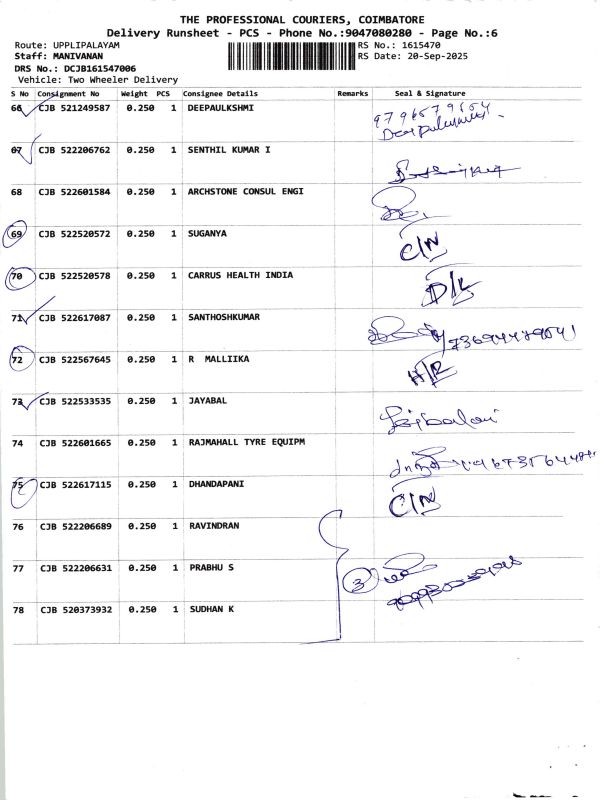 THE PROFESSIONAL COURIERS, COIMBATORE
Delivery Runsheet - PCS - Phone No.:9047080280 - Page No.:6
Route: UPPLIPALAYAM RS No.: 1615470
Staff: MANIVANAN RS Date: 20-Sep-2025
DRS No.: DCJB161547006
Vehicle: Two Wheeler Delivery
S No Consignment No Weight PCS Consignee Details Remarks Seal & Signature
66 CJB 521249587 0.250 1 DEEPAULKSHMI
67 CJB 522206762 0.250 1 SENTHIL KUMAR I
68 CJB 522601584 0.250 1 ARCHSTONE CONSUL ENGI
69 CJB 522520572 0.250 1 SUGANYA C/N
70 CJB 522520578 0.250 1 CARRUS HEALTH INDIA D/L
71 CJB 522617087 0.250 1 SANTHOSHKUMAR
72 CJB 522567645 0.250 1 R MALLIIKA H/R
73 CJB 522533535 0.250 1 JAYABAL
74 CJB 522601665 0.250 1 RAJMAHALL TYRE EQUIPM
75 CJB 522617115 0.250 1 DHANDAPANI C/N
76 CJB 522206689 0.250 1 RAVINDRAN
77 CJB 522206631 0.250 1 PRABHU S 3
78 CJB 520373932 0.250 1 SUDHAN K